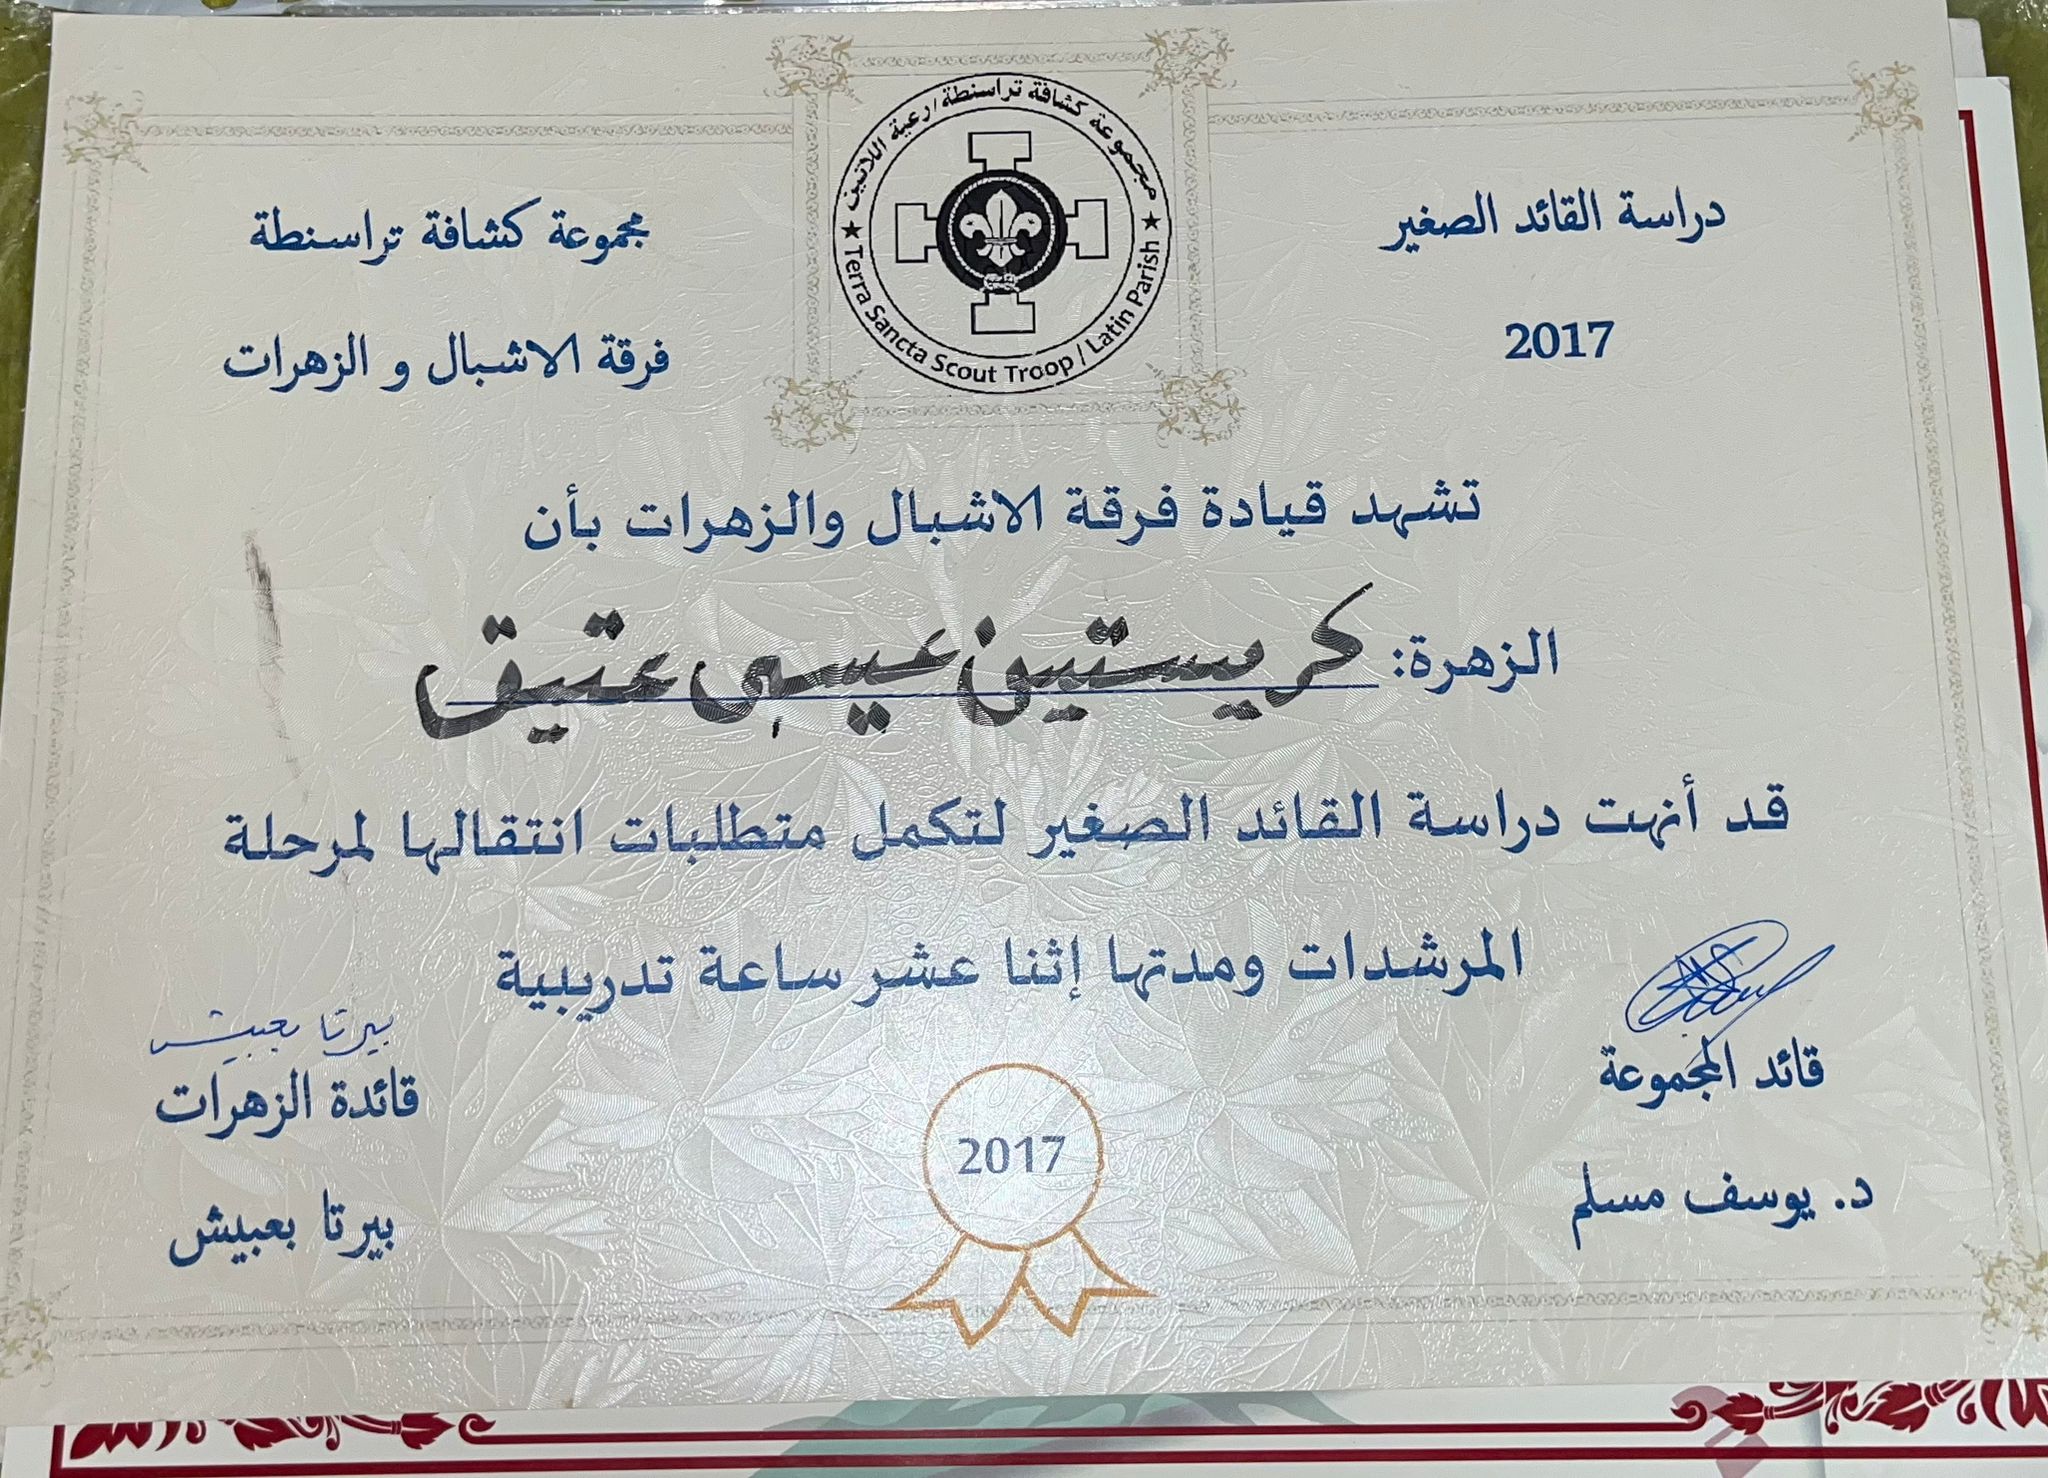 مجموعة كشافة تراسنطة/رعية اللاتين
Terra Sancta Scout Troop / Latin Parish
دراسة القائد الصغير
2017
مجموعة كشافة تراسنطة
فرقة الاشبال و الزهرات
تشهد قيادة فرقة الاشبال والزهرات بأن
الزهرة: كريستين عيسى عتيق
قد أنهت دراسة القائد الصغير لتكمل متطلبات انتقالها لمرحلة
المرشدات ومدتها إثنا عشر ساعة تدريبية
قائد المجموعة
د. يوسف مسلم
2017
بيرتا بعبيش
قائدة الزهرات
بيرتا بعبيش